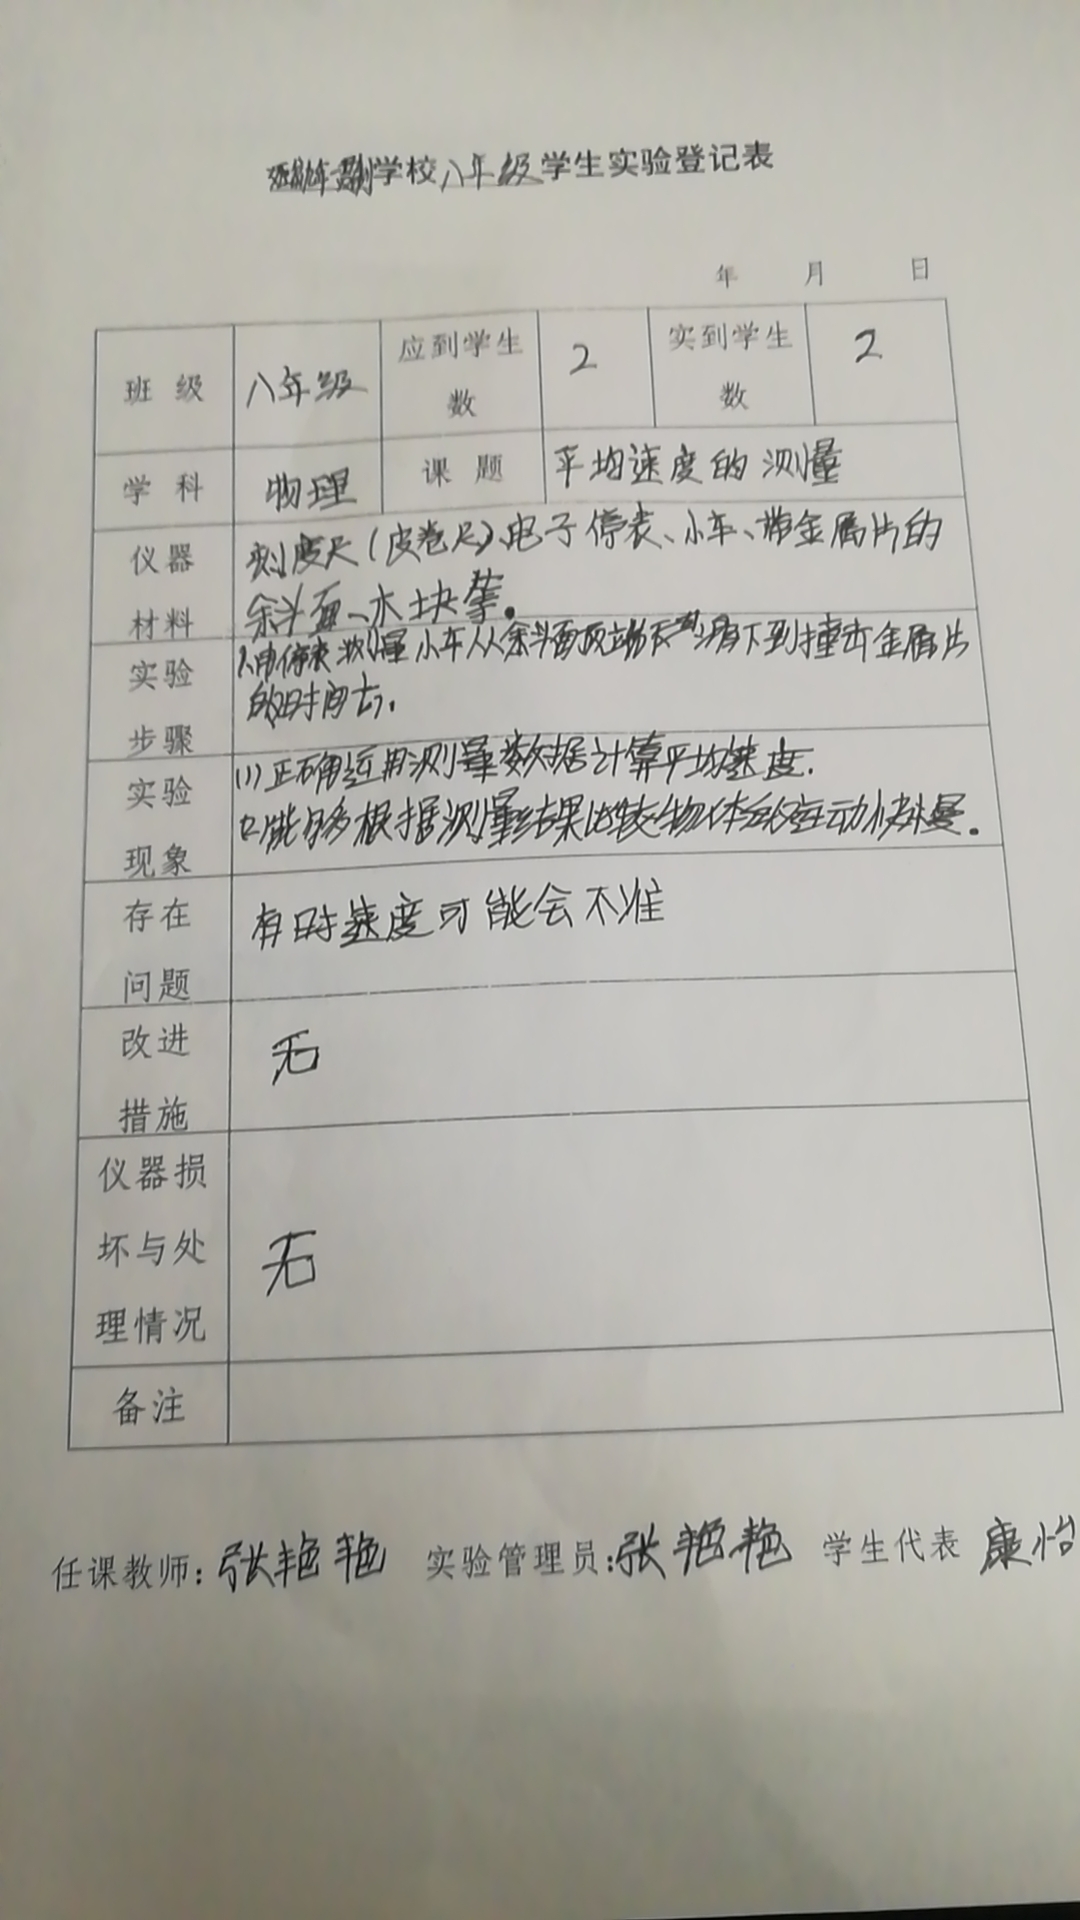 学校八年级学生实验登记表
年 月 日
班 级 八年级 应到学生数 2 实到学生数 2
学 科 物理 课 题 平均速度的测量
仪器材料 刻度尺(皮卷尺)、电子停表、小车、带金属片的
斜面、木块等。
实验步骤 1.用停表测量小车从斜面顶端 滑下到撞击金属片
的时间t1.
实验现象 (1)正确运用测量数据计算平均速度.
(2)能够根据测量结果比较物体 运动快慢。
存在问题 有时速度可能会不准
改进措施 无
仪器损坏与处理情况 无
备注
任课教师:张艳艳 实验管理员:张艳艳 学生代表 康怡